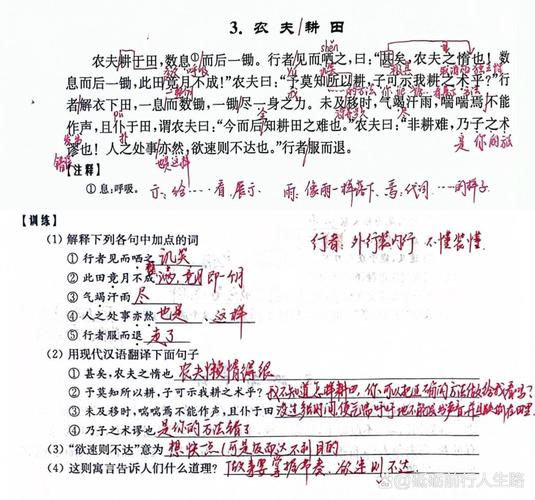 3. 农夫耕田
shěn
农夫耕于田,数息①而后一锄。行者见而哂之,曰:“甚矣,农夫之惰也!数
息而后一锄,此田竟月不成!”农夫曰:“予莫知所以耕,子可示我耕之术乎?”行
者解衣下田,一息而数锄,一锄尽一身之力。未及移时,气竭汗雨,喘喘焉不能
作声,且仆于田,谓农夫曰:“今而后知耕田之难也。”农夫曰:“非耕难,乃子之术
谬也!人之处事亦然,欲速则不达也。”行者服而退。
是你的放
错误
【注释】
①息:呼吸。
示:给……看,展示 雨:像雨一样落下 焉:代词……的样子
【训练】
行者:外行装内行 不懂装懂
(1)解释下列各句中加点的词
①行者见而哂之 讥笑
②此田竟月不成 满,竟月即一个月
③气竭汗雨 尽
④人之处事亦然 也是、这样
⑤行者服而退 走了
(2)用现代汉语翻译下面句子
①甚矣,农夫之惰也 农夫懒惰得很
②予莫知所以耕,子可示我耕之术乎?我不知道怎样耕田,你可以把
③未及移时,喘喘焉不能作声,且仆于田
④乃子之术谬也 是你的方法错了
(3)“欲速则不达”意为 想快一点,可是反而达不到目的
(4)这则寓言告诉人们什么道理?做事要掌握节奏,欲速则不达
@微微前行人生路